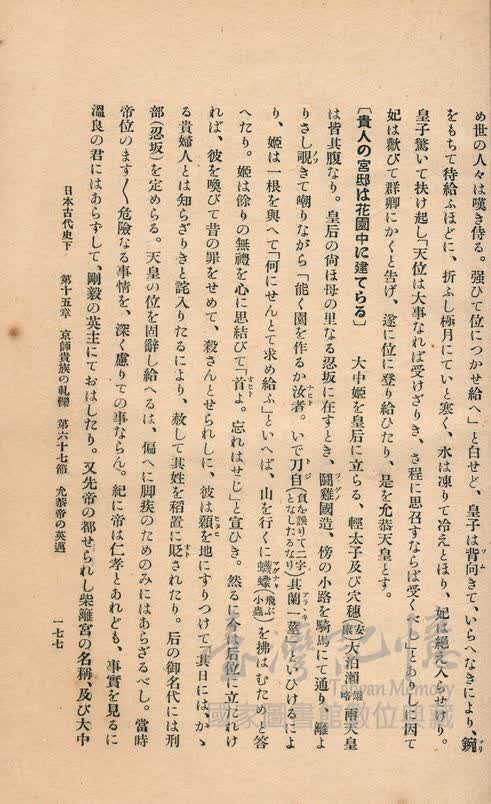 め世の人々は嘆き侍る。强ひて位につかせ給へ」と白せど、皇子は背向きて、いらへなきにより、鋺
をもちて待給ふほどに、折ふし極月にていと寒く、水は凍りて冷えとほり、妃は絕え入らせけり。
皇子驚いて扶け起し「天位は大事なれば受けざりき、さ程に思召すならば受くべし」とありしに因て
妃は歡びて群卿にかくと告げ、遂に位に登り給ひたり、是を允恭天皇とす。
〔貴人の宮邸は花園中に建てらる〕 大中姬を皇后に立らる、輕太子及び穴穗(安康)大泊瀨(雄略)兩天皇
は皆其腹なり。皇后の尙ほ母の里なる忍坂に在すとき、鬪雞國造、傍の小路を騎馬にて通り、籬よ
りさし覗きて嘲りながら「能く園を作るか汝者。いで刀自(負を誤りて二字となしたるなり)其蘭一莖」といひけるによ
り、姬は一根を與へて「何にせんとて求め給ふ」といへば、山を行くに蠛蠓(飛ぶ小蟲)を拂はむためと答
へたり。姬は餘りの無禮を心に思結びて「首よ。忘れはせじ」と宣ひき。然るに今は后位に立たれけ
れば、彼を喚びて昔の罪をせめて、殺さんとせられしに、彼は顙を地にすりつけて「其日には、かゝ
る貴婦人とは知らざりきと詫入りたるにより、赦して其姓を稻置に貶されたり。后の御名代には刑
部(忍坂)を定めらる。天皇の位を固辭し給へるは、偏へに脚疾のためのみにはあらざるべし。當時
帝位のます〱危險なる事情を、深く慮りての事ならん。紀に帝は仁孝とあれども、事實を見るに
溫良の君にはあらずして、剛毅の英主にておはしたり。又先帝の都せられし柴籬宮の名稱、及び大中
日本古代史下 第十五章 京師貴族の軋轢 第六十七節 允恭帝の英邁 一七七
臺灣記憶
Taiwan Memory
國家圖書館數位典藏